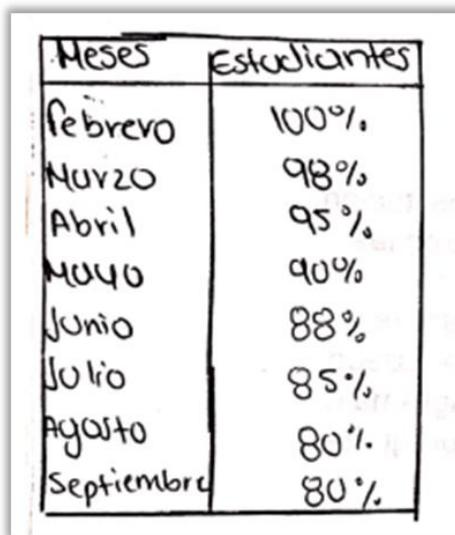 Meses Estudiantes
febrero 100%
Marzo 98%
Abril 95%
Mayo 90%
Junio 88%
Julio 85%
Agosto 80%
Septiembre 80%